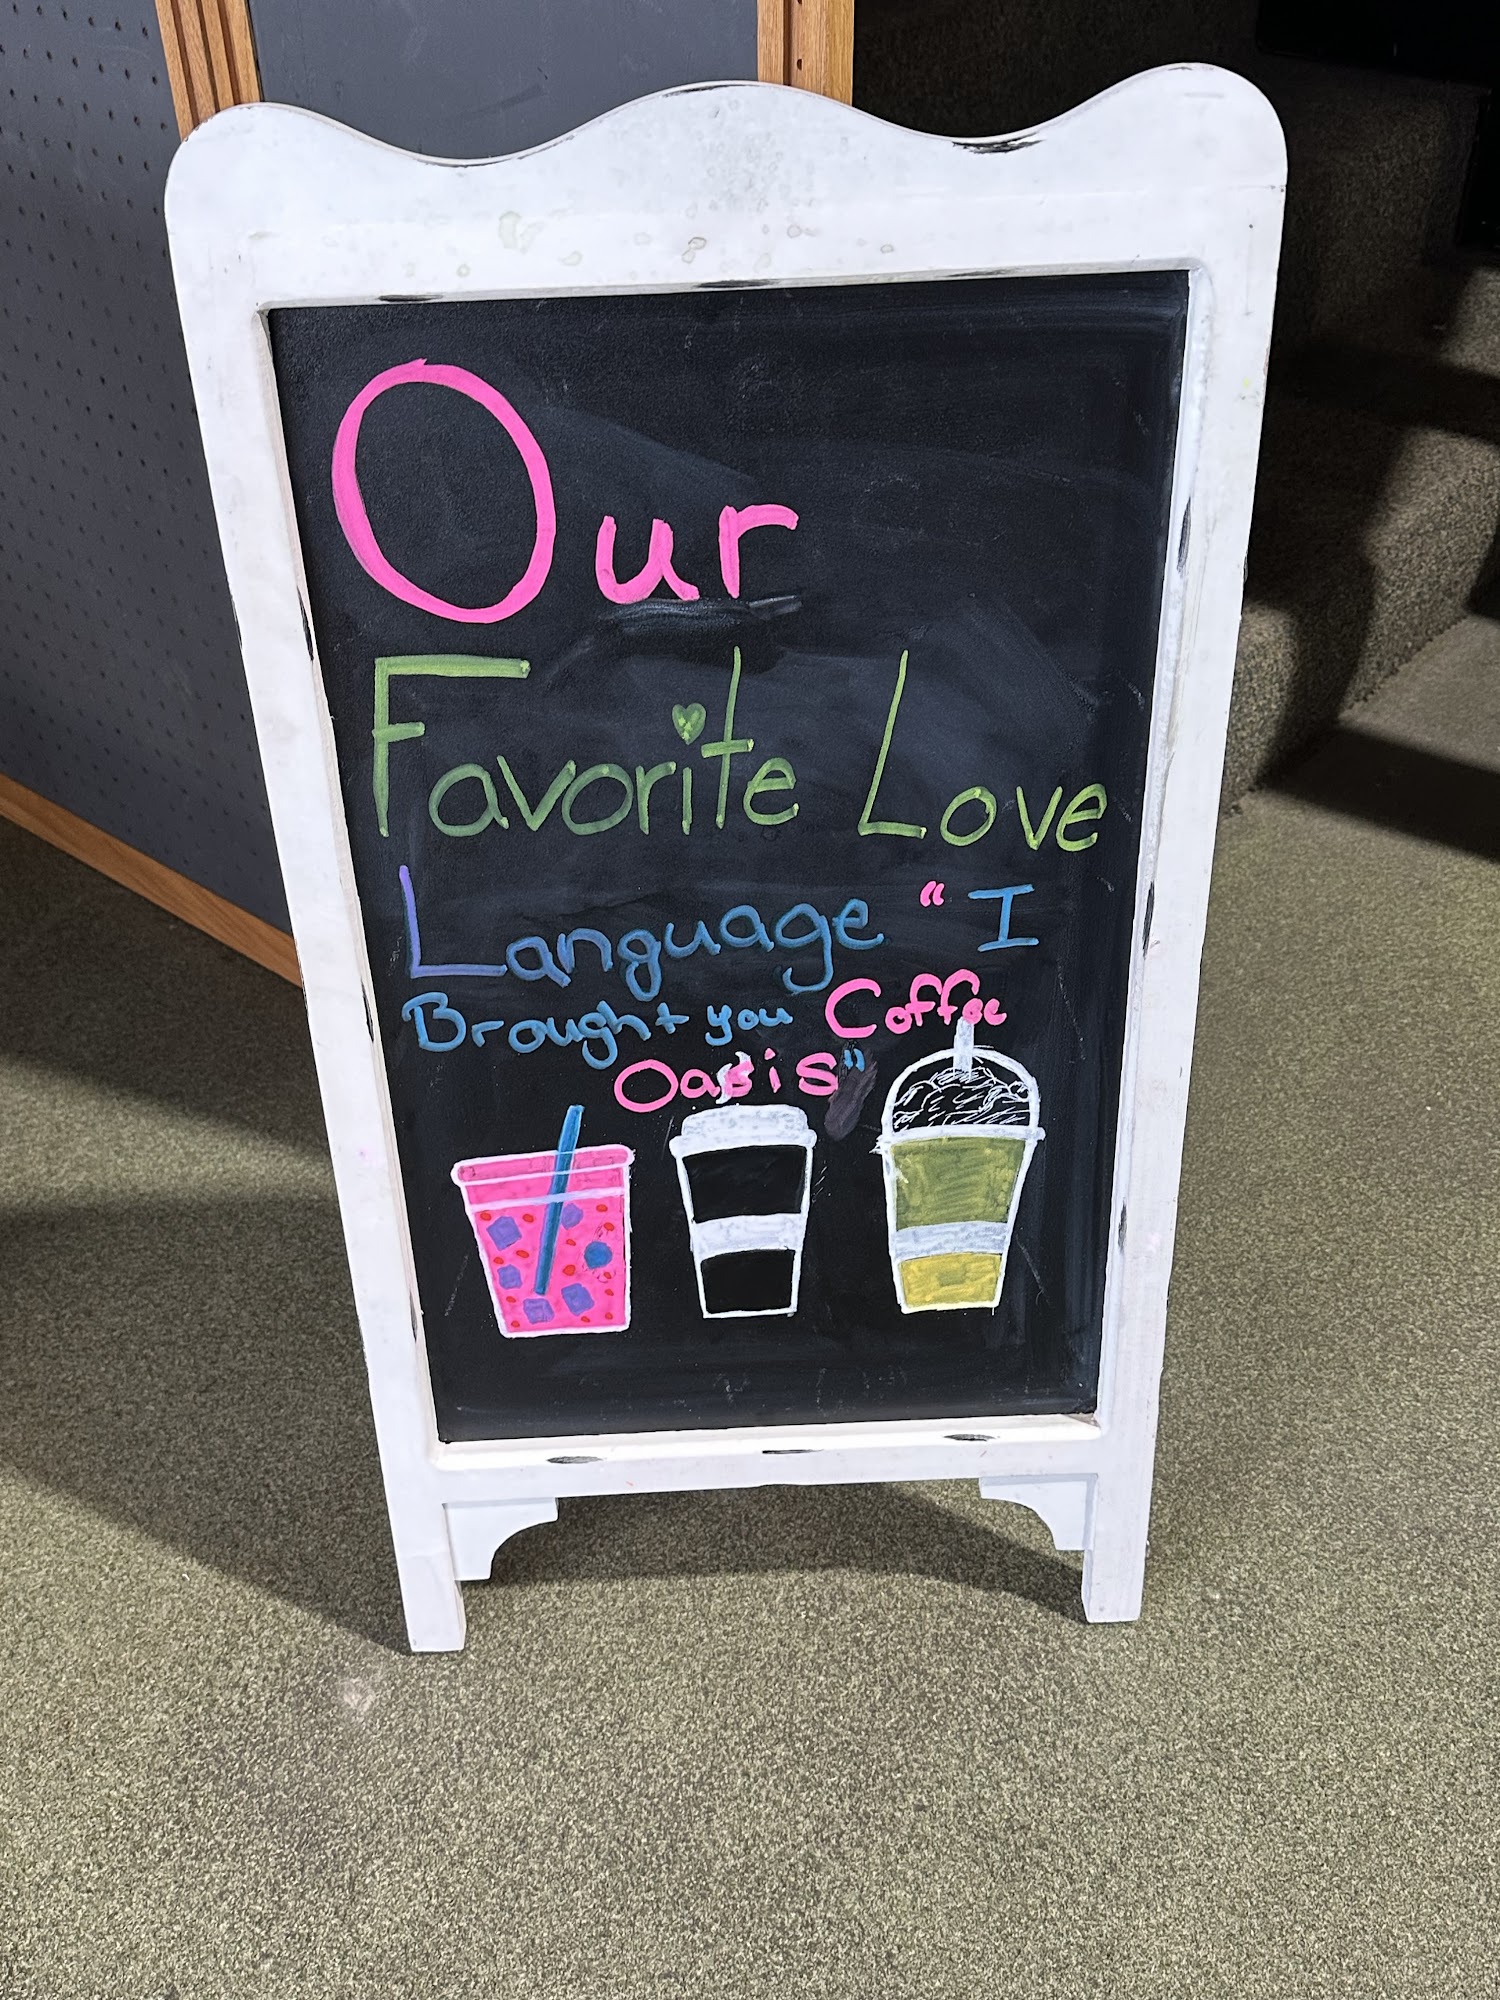 Our
Favorite Love
Language “I
Brought you Coffee
Oasis”